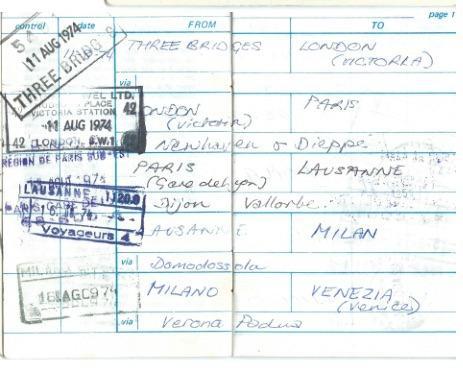 page 1
control date FROM TO
11 AUG 1974 THREE BRIDGES LONDON
THREE BRIDG S (VICTORIA)
via
VEL LTD. 42
PLACE LONDON PARIS
VICTORIA STATION (Victoria)
11 AUG 1974
42 LONDON, S.W.1 Newhaven & Dieppe
REGION DE PARIS SUD-EST PARIS LAUSANNE
(Gare de Lyon)
LAUSANNE
PARIS GARE DE Dijon Vallorbe
Voyageurs 4 LAUSANNE MILAN
via Domodossola
MILANO
16 AGO 974 MILANO VENEZIA
(Venice)
via Verona Padua